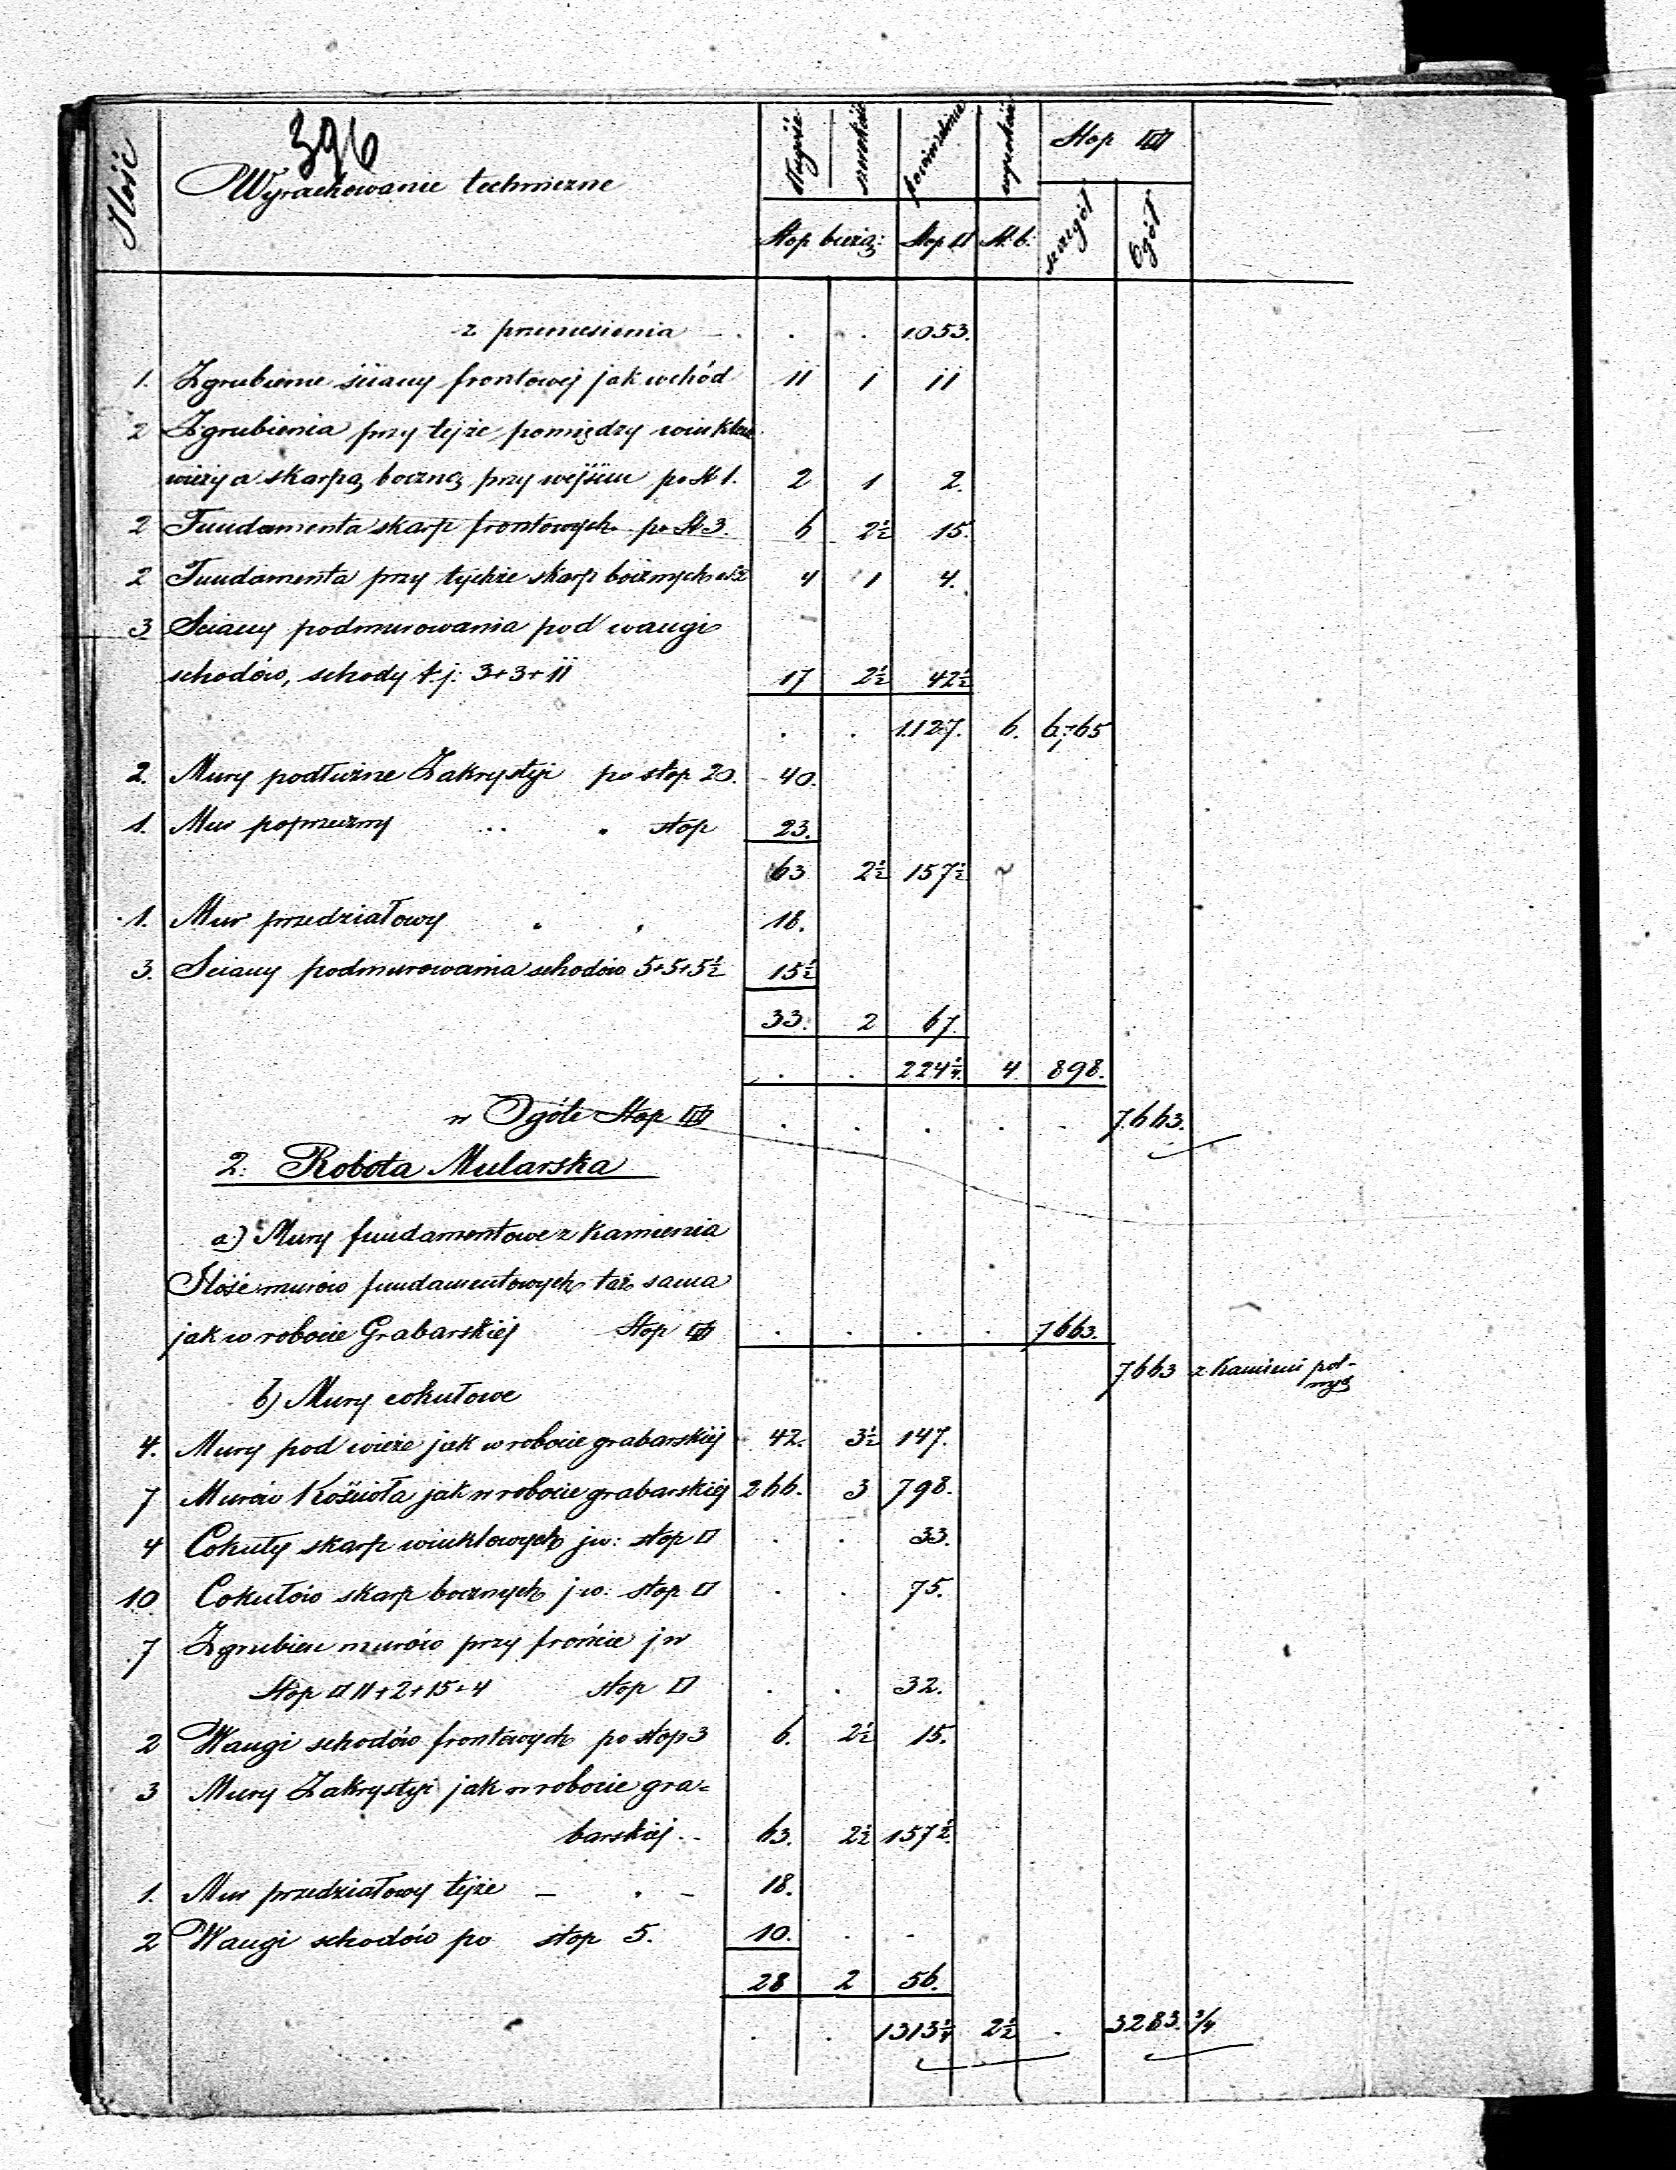 396
Ilość
Wyrachowanie techniczne
długość
szerokość
powierzchnia
wysokość
Stop
Stop bieżą:
Stop □
St. b.
szczegół
Ogół
z przeniesienia . . 1053.
1. Zgrubienie ściany frontowej jak wchód 11 1 11
2 Zgrubienia przy tejże pomiędzy winklem
wieży a skarpą boczną przy wejściu po St 1. 2 1 2.
2 Fundamenta skarp frontowych po St 3. 6 2½ 15.
2 Fundamenta przy tychże skarp bocznych 4 1 4.
3 Sciany podmurowania pod wangi
schodów, schody t.j. 3+3+11 17 2½ 42½
. . 1127. 6. 6,765
2. Mury podłużne Zakrystyi po stop 20. 40.
1. Mur poprzeczny " " stop 23.
63 2½ 157½
1. Mur przedziałowy 18.
3. Sciany podmurowania schodów 5+5+5½ 15½
33. 2 67.
. . 224½. 4. 898.
w Ogóle Stop . . . . . 7663.
2. Robota Mularska
a.) Mury fundamentowe z kamienia
Ilość murów fundamentowych taż sama
jak w robocie Grabarskiej Stop . . . . 7663.
7663 z kamieni pol-
nych
b) Mury cokułowe
4. Mury pod wieże jak w robocie grabarskiej 42. 3½ 147.
7 Murów Kościoła jak w robocie grabarskiej 266. 3 798.
4 Cokuły skarp winklowych jw: stop □ . . 33.
10 Cokułów skarp bocznych jw: stop □ . . 75.
7 Zgrubień murów przy froncie jw
Stop □ 11+2+15+4 stop □ . . 32.
2 Wangi schodów frontowych po stop 3 6. 2½ 15.
3 Mury Zakrystyi jak w robocie gra=
barskiej .. 63. 2½ 157½
1. Mur przedziałowy tejże — . — 18.
2 Wangi schodów po stop 5. 10. . .
28 2 56.
. . 1313½ 2½ . 3283. ¾